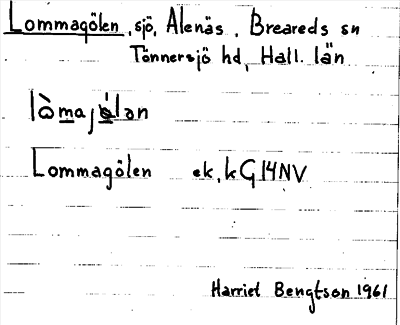 Lommagölen, sjö, Alenäs, Breareds sn
Tönnersjö hd, Hall. län
Lommagölen ek. k G14NV
Harriet Bengtson 1961